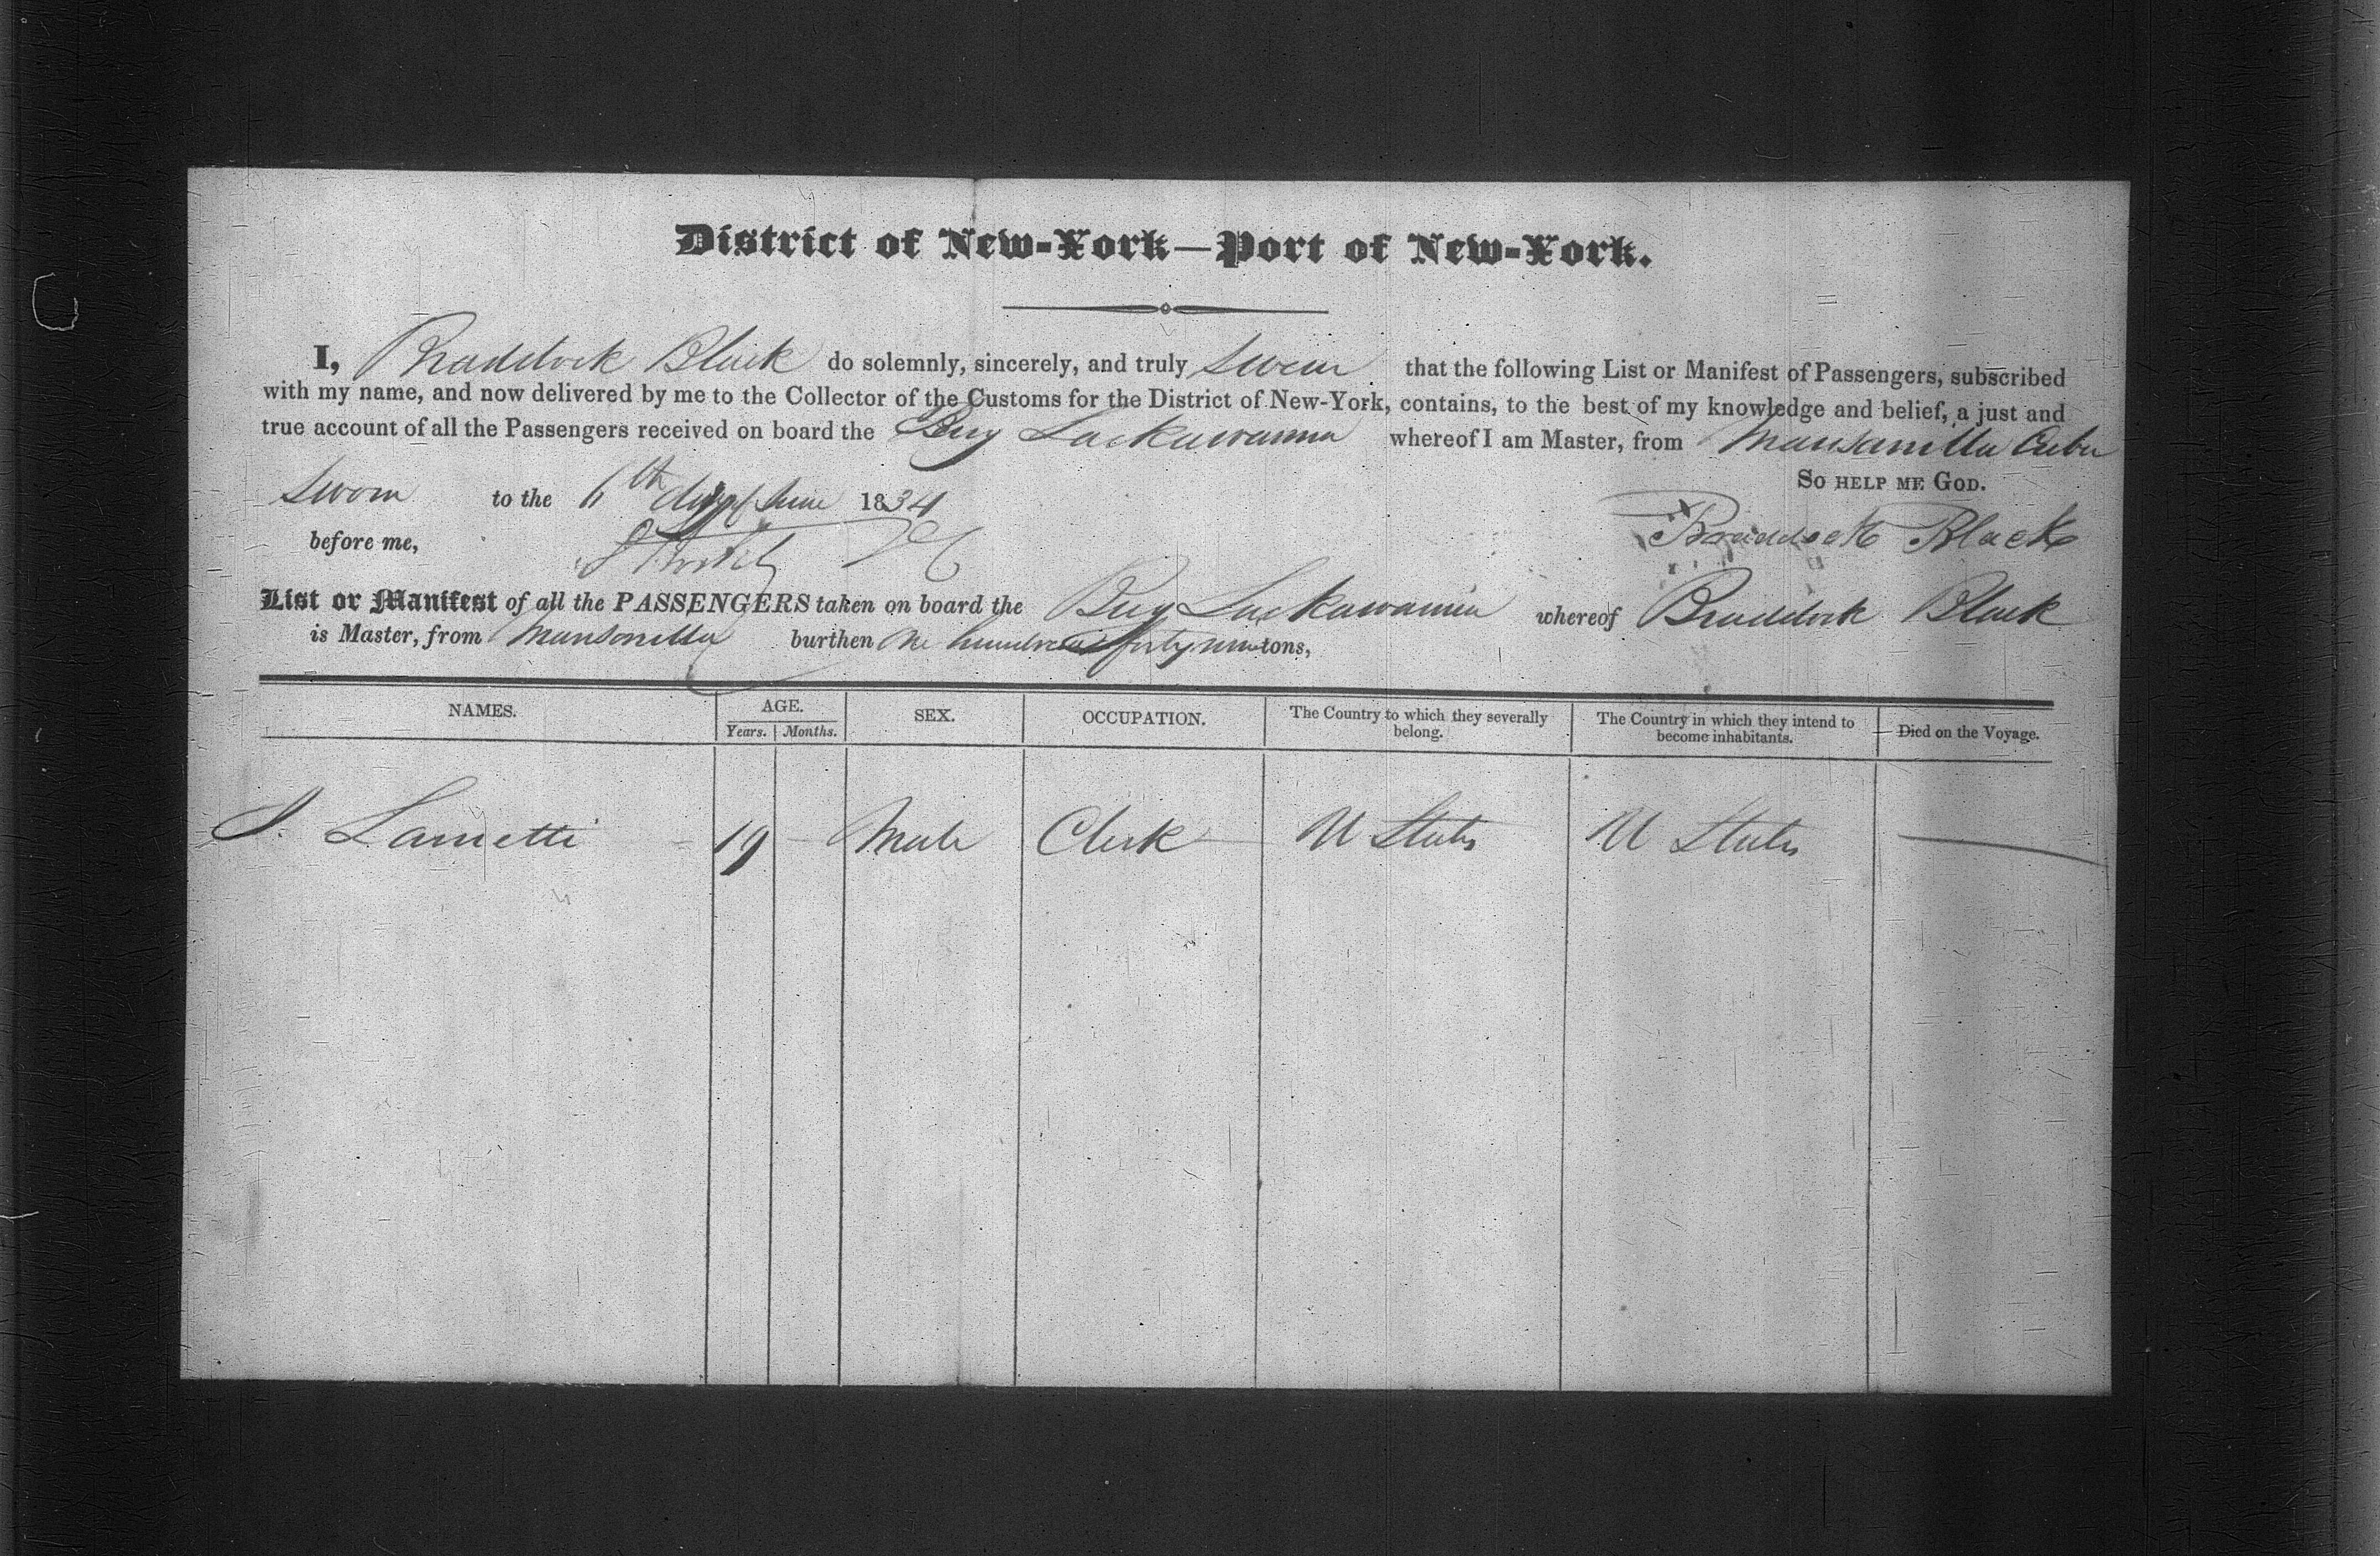 District of New-York—Port of New-York.
I, Braddock Black do solemnly, sincerely, and truly swear that the following List or Manifest of Passengers, subscribed
with my name, and now delivered by me to the Collector of the Customs for the District of New-York, contains, to the best of my knowledge and belief, a just and
true account of all the Passengers received on board the Brig Lackawanna whereof I am Master, from Mansanilla Cuba
So help me God.
Sworn to the 6th day of June 1834
before me, Braddock Black
List or Manifest of all the PASSENGERS taken on board the Brig Lackawanna whereof Braddock Black
is Master, from Mansanilla burthen One hundred forty nine tons,
NAMES. AGE. SEX. OCCUPATION. The Country to which they severally belong. The Country in which they intend to become inhabitants. Died on the Voyage.
Years. Months.
19 Male Clerk U States U States